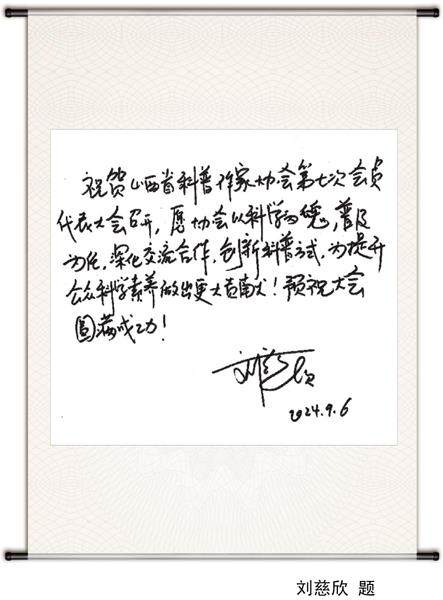 祝贺山西省科普作家协会第七次会员
代表大会召开，愿协会以科学为魂，普及
为任，深化交流合作，创新科普方式，为提升
公众科学素养做出更大贡献！预祝大会
圆满成功！
刘慈欣
2024.9.6
刘慈欣 题